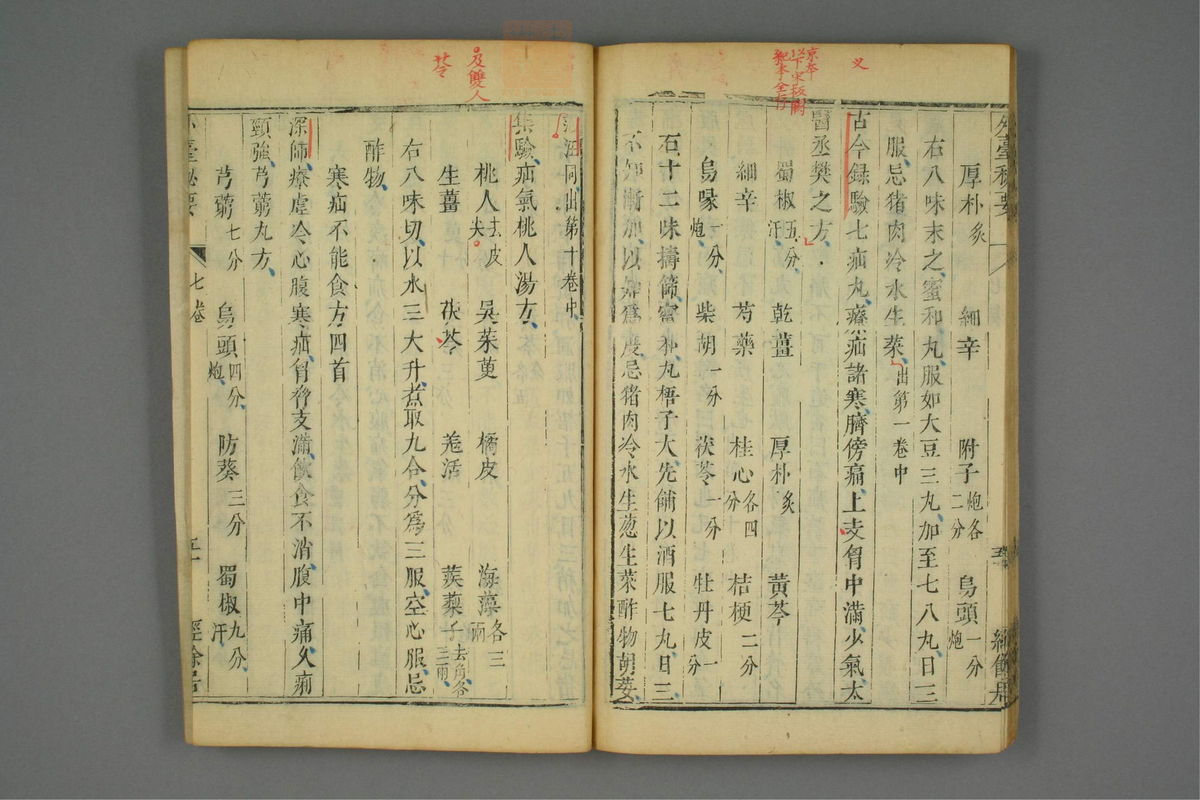 外臺秘要
厚朴炙 細辛 附子炮各二分 烏頭一分炮
右八味末之蜜和丸服如大豆三丸加至七八丸日三
服忌猪肉冷水生菜出第一卷中
古今録驗七疝丸療疝諸寒臍傍痛上支胷中滿少氣太
醫丞樊之方
蜀椒五分汗 乾薑 厚朴炙 黃芩
細辛 芍藥 桂心各四分 桔梗二分
烏喙一分炮 柴胡一分 茯苓一分 牡丹皮一分
右十二味擣篩蜜和丸梧子大先餔以酒服七丸日三
不知漸加以知爲度忌猪肉冷水生葱生菜酢物胡荽
同出第十卷中
集驗疝氣桃人湯方
桃人去皮尖 吳茱萸 橘皮 海藻各三兩
生薑 茯苓 羗活 蒺藜子去角各三兩
右八味切以水三大升煮取九合分爲三服空心服忌
酢物
寒疝不能食方四首
深師療虛冷心腹寒疝胷脅支滿飲食不消腹中痛久痢
頸強芎藭丸方
芎藭七分 烏頭四分炮 防葵三分 蜀椒九分汗
臺秘要
七卷
經餘居
又
京本
及雙人
苓